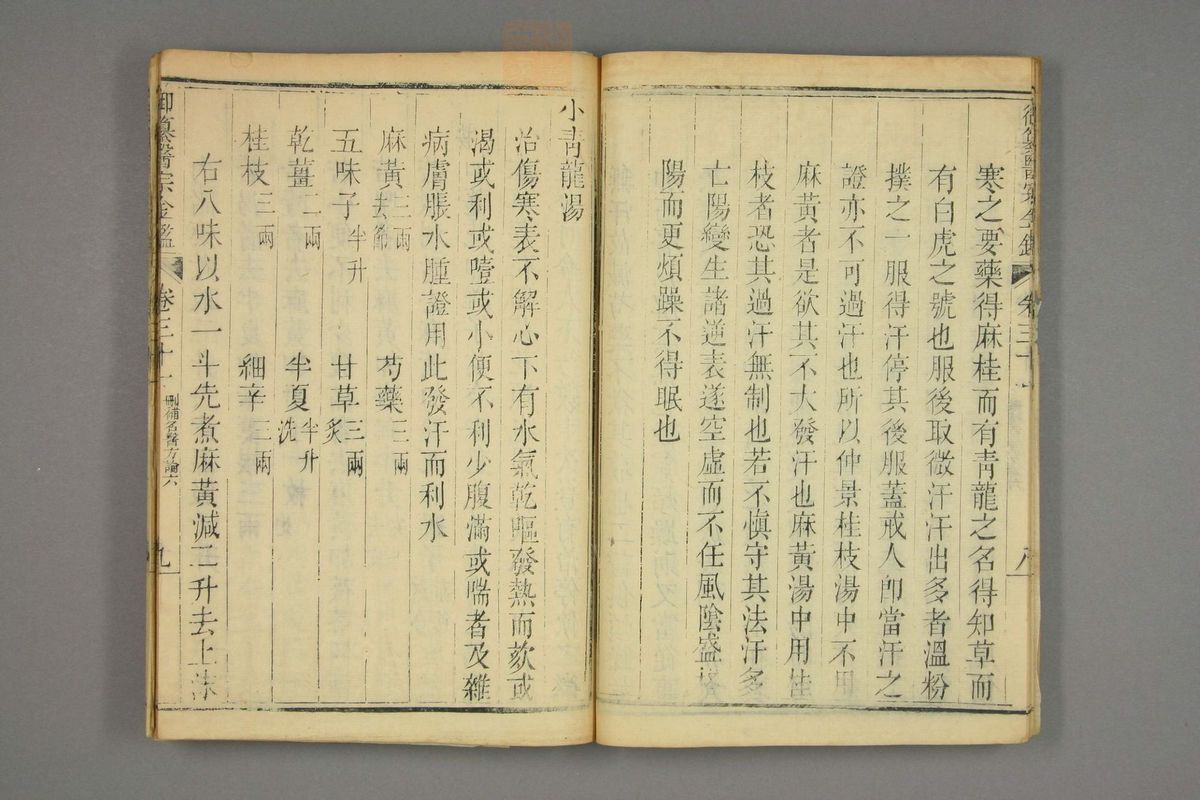 寒之要藥得麻桂而有青龍之名得知草而
有白虎之號也服後取微汗汗出多者溫粉
撲之一服得汗停其後服蓋戒人卽當汗之
證亦不可過汗也所以仲景桂枝湯中不用
麻黃者是欲其不大發汗也麻黃湯中用桂
枝者恐其過汗無制也若不慎守其法汗多
亡陽變生諸逆表遂空虛而不任風陰盛格
陽而更煩躁不得眠也
小青龍湯
治傷寒表不解心下有水氣乾嘔發熱而欬或
渴或利或噎或小便不利少腹滿或喘者及雜
病膚脹水腫證用此發汗而利水
麻黃去節三兩 芍藥三兩
五味子半升 甘草炙三兩
乾薑二兩 半夏洗半升
桂枝三兩 細辛三兩
右八味以水一斗先煮麻黃減二升去上沫
御纂醫宗金鑑 卷三十一 刪補名醫方論六 九